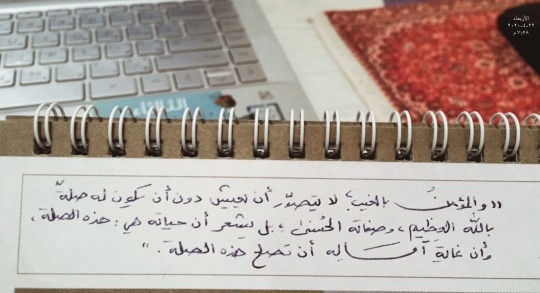 الأربعاء
٢٠٢٠-٤-٢٢
الثلاثاء
« والمؤمن بالغيب؛ لا يتصوّر أن يعيش دون أن تكون له صلةٌ
بالله العظيم، وصفاته الحُسنى؛ بل يشعر أن حياته هي: هذه الصلة،
وأن غاية آمـــاله أن تصلح هذه الصلة. "